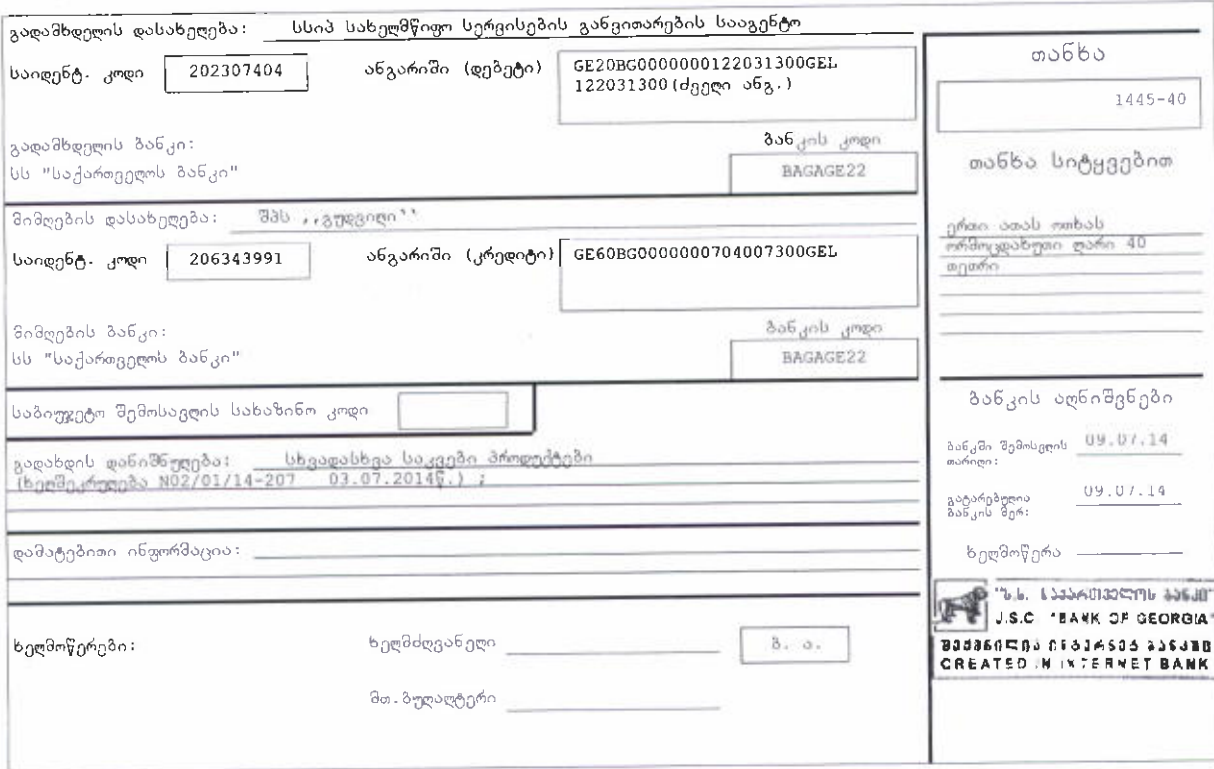 გადამხდელის დასახელება: სსიპ სახელმწიფო სერვისების განვითარების სააგენტო
საიდენტ. კოდი 202307404 ანგარიში (დებეტი) GE20BG0000000122031300GEL
122031300(ძველი ანგ.)
გადამხდელის ბანკი: ბანკის კოდი
სს "საქართველოს ბანკი" BAGAGE22
მიმღების დასახელება: შპს ,,გუდვილი''
საიდენტ. კოდი 206343991 ანგარიში (კრედიტი) GE60BG0000000704007300GEL
მიმღების ბანკი: ბანკის კოდი
სს "საქართველოს ბანკი" BAGAGE22
საბიუჯეტო შემოსავლის სახაზინო კოდი
გადახდის დანიშნულება: სხვადასხვა საკვები პროდუქტები
(ხელშეკრულება N02/01/14-207 03.07.2014წ.) ;
დამატებითი ინფორმაცია:
ხელმოწერები: ხელმძღვანელი ბ. ა.
მთ.ბუღალტერი
თანხა
1445-40
თანხა სიტყვებით
ერთი ათას ოთხას
ორმოცდახუთი ლარი 40
თეთრი
ბანკის აღნიშვნები
ბანკში შემოსვლის 09.07.14
თარიღი:
გატარებულია 09.07.14
ბანკის მერ:
ხელმოწერა
"ს.ს. საქართველოს ბანკი"
J.S.C "BANK OF GEORGIA"
შექმნილია ინტერნეტ ბანკში
CREATED IN INTERNET BANK